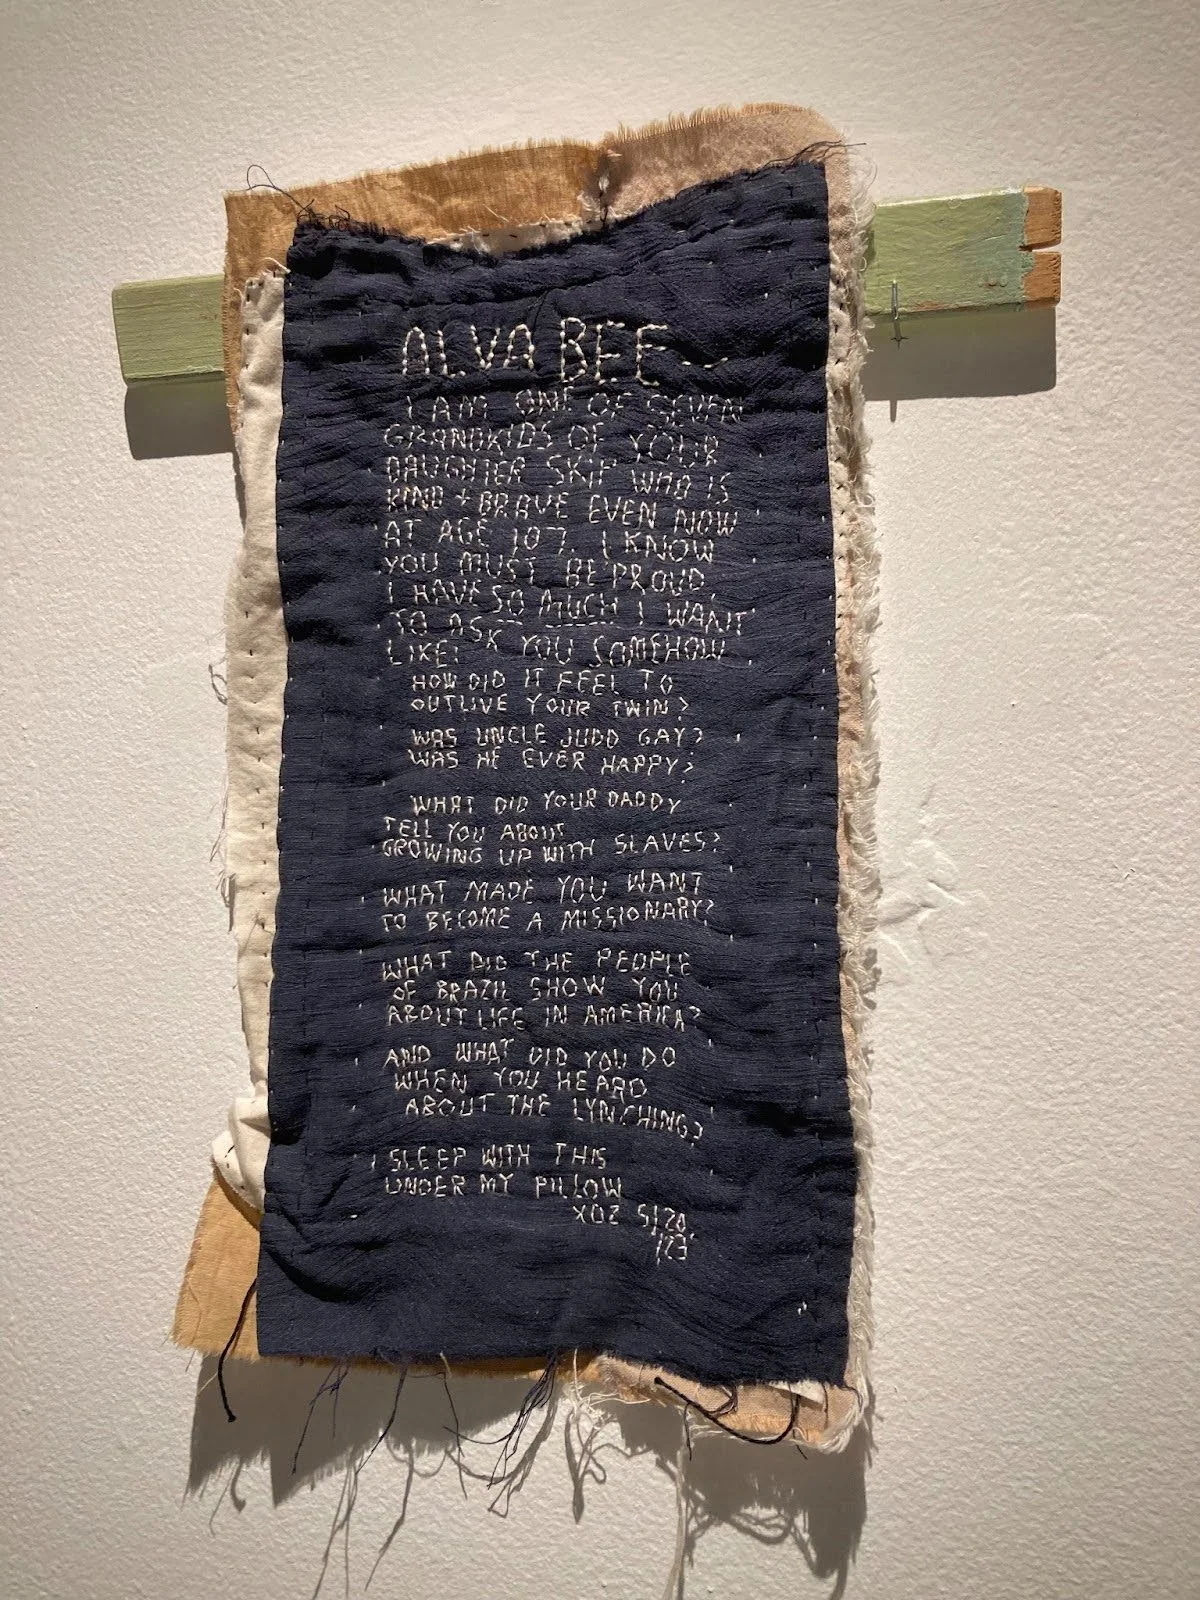 ALVA BEE --
I AM ONE OF SEVEN
GRANDKIDS OF YOUR
DAUGHTER SKIP WHO IS
KIND + BRAVE EVEN NOW
AT AGE 107. I KNOW
YOU MUST BE PROUD.
I HAVE SO MUCH I WANT
TO ASK YOU SOMEHOW
LIKE:
HOW DID IT FEEL TO
OUTLIVE YOUR TWIN?
WAS UNCLE JUDD GAY?
WAS HE EVER HAPPY?
WHAT DID YOUR DADDY
TELL YOU ABOUT
GROWING UP WITH SLAVES?
WHAT MADE YOU WANT
TO BECOME A MISSIONARY?
WHAT DID THE PEOPLE
OF BRAZIL SHOW YOU
ABOUT LIFE IN AMERICA?
AND WHAT DID YOU DO
WHEN YOU HEARD
ABOUT THE LYNCHING?
I SLEEP WITH THIS
UNDER MY PILLOW
XOZ 5/20
/23